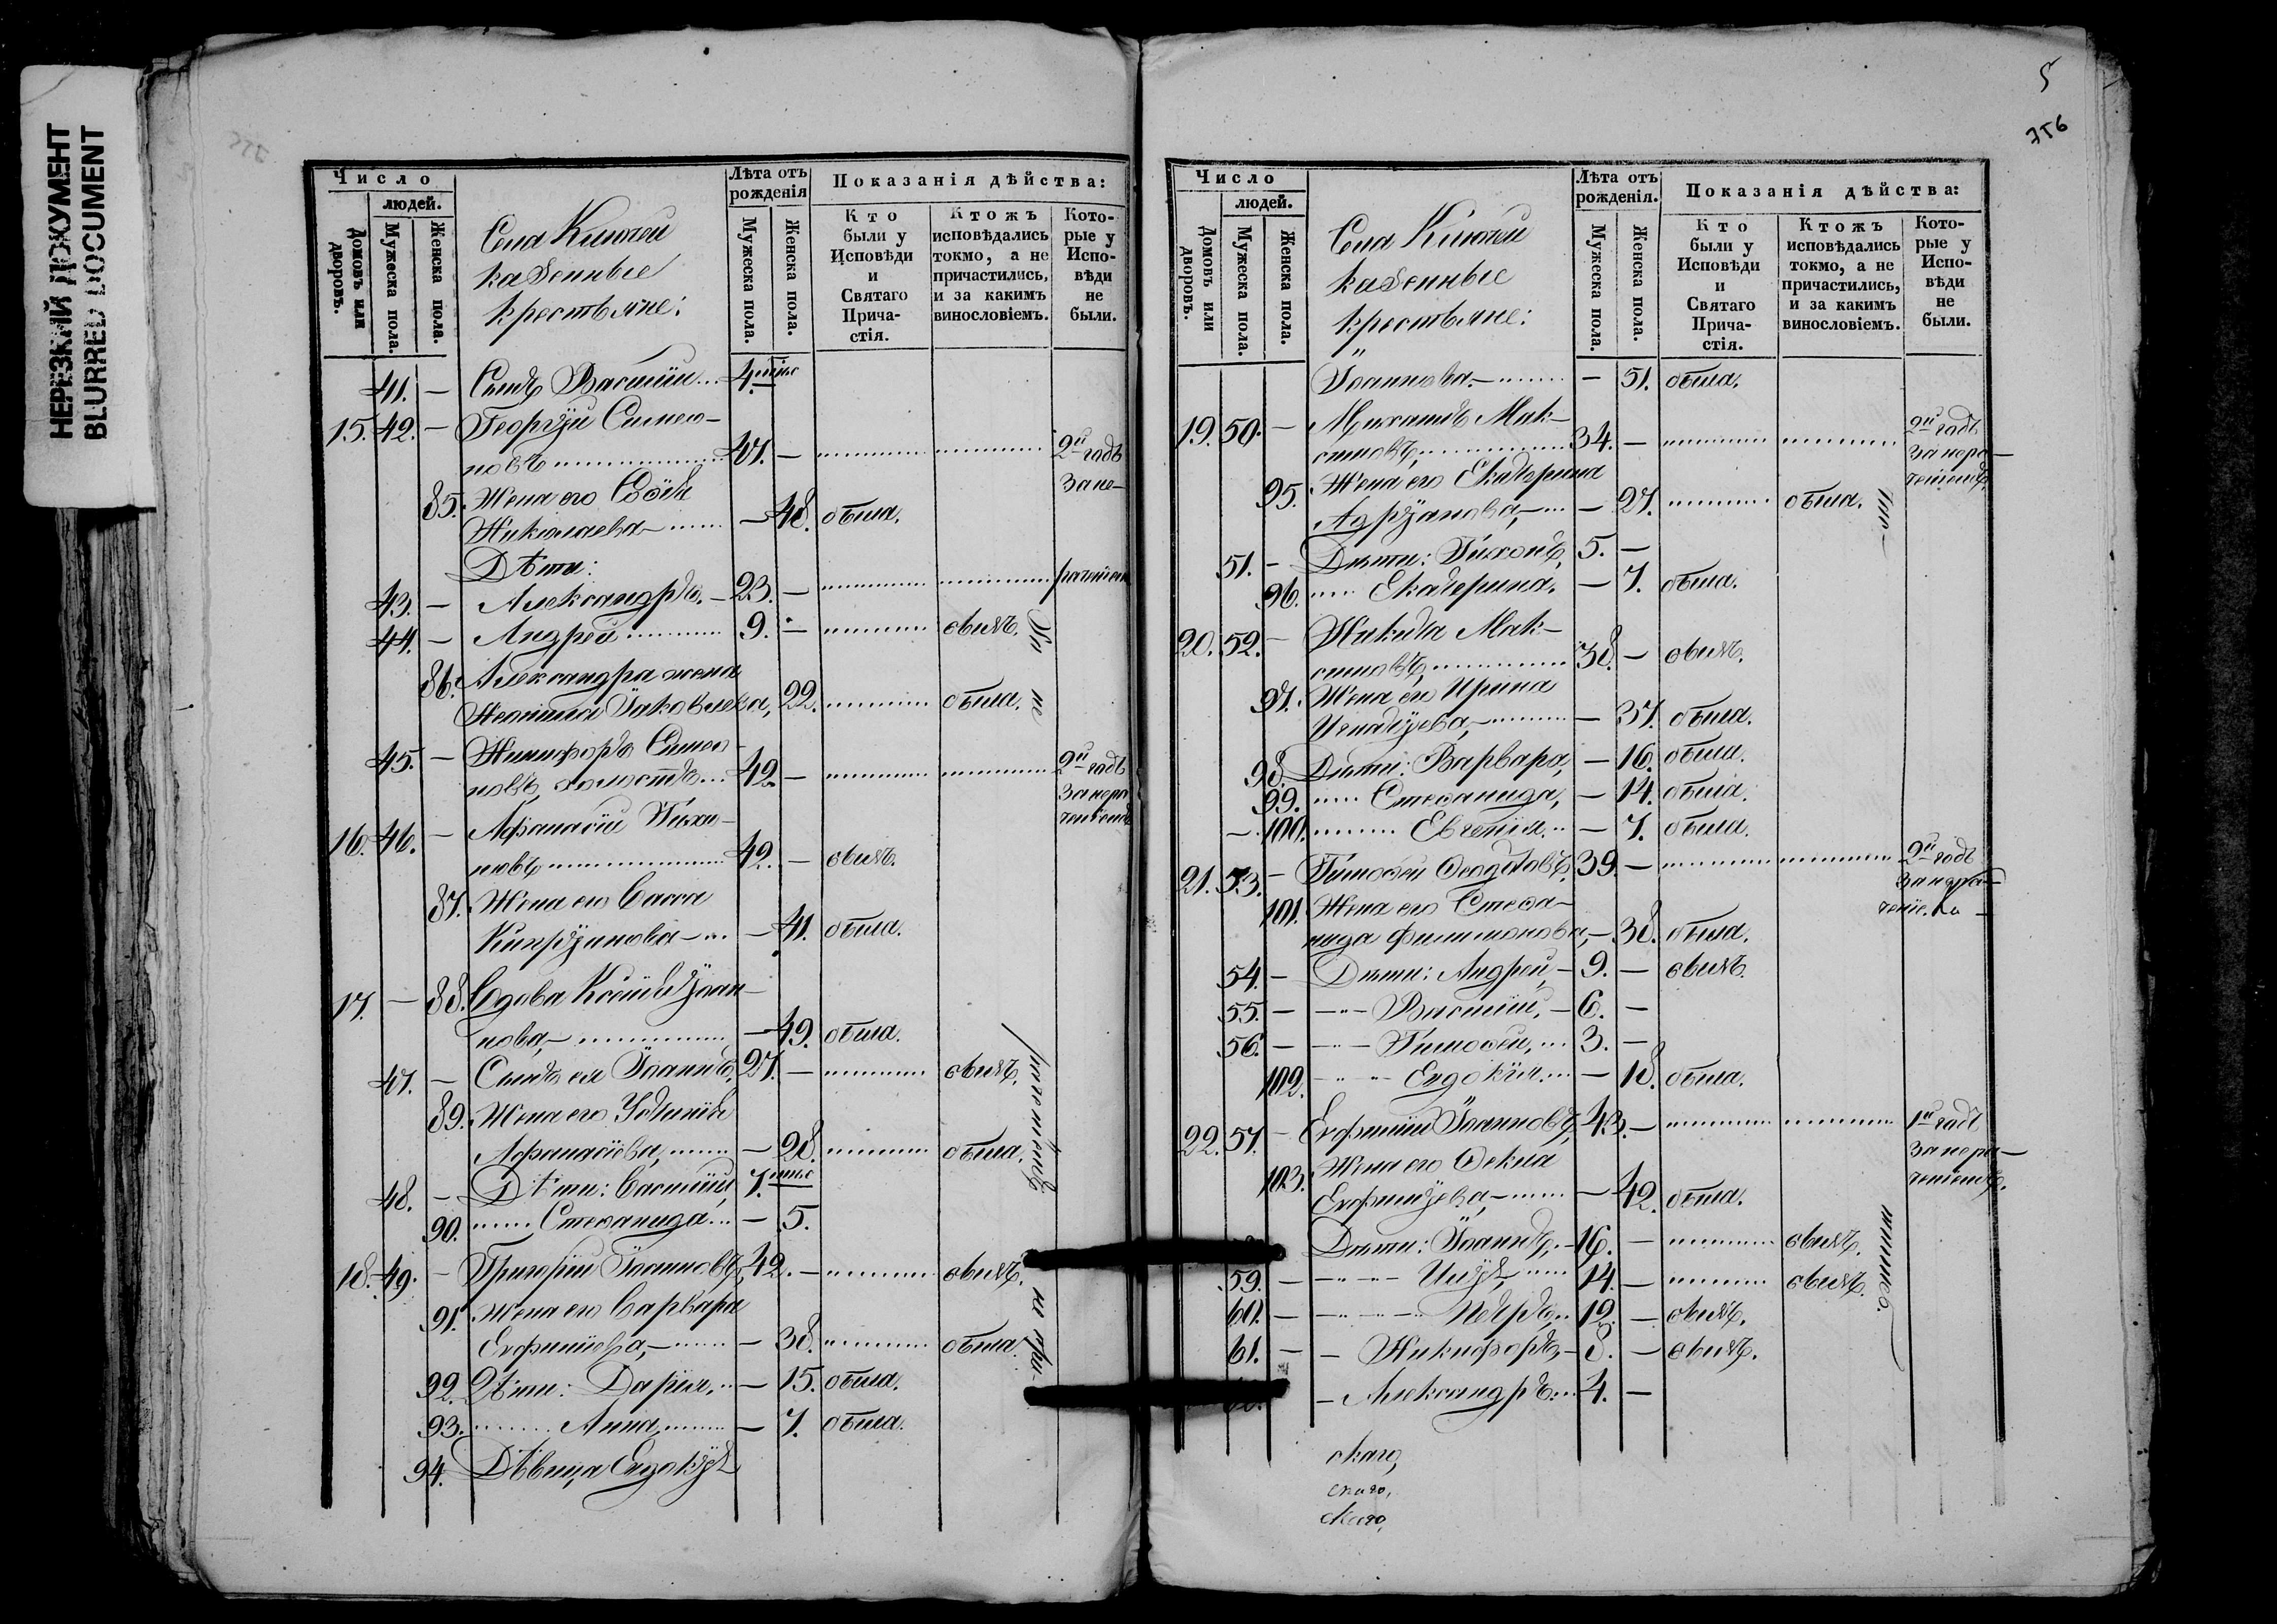 НЕРЕЗКИЙ ДОКУМЕНТ
BLURRED DOCUMENT
Число
людей.
Домовъ или дворовъ.
Мужеска пола.
Женска пола.
Села
казенные
крестьяне:
Лѣта отъ рожденія
Мужеска пола.
Женска пола.
Показанія дѣйства:
Кто были у Исповѣди и Святаго Прича-стія.
Ктожъ исповѣдались токмо, а не причастились, и за какимъ винословіемъ.
Кото-рые у Испо-вѣди не были.
41. — Сынъ Василій 4.
15. 42. — Георгій Симео-
новъ 47. — 2й годъ
за не-
85. Жена его Софія
Николаева — 48. была.
Дѣти:
43. — Александръ, 23. —
44. — Андрей 9. — былъ.
86. Александра жена
Іаковлева, 22. была. не
45. — Никифоръ Симео-
новъ, холостъ 42. — 2й годъ
за нера
16. 46. — Афанасій Тихо-
новъ 42. — былъ.
87. Жена его Васса
Кипріанова — 41. была.
17. — 88. Вдова Ксенія Іоан-
нова, — 49. была.
47. — Сынъ ея Іоаннъ, 27. — былъ.
89. Жена его Устинія
Афанасіева, — 28. была.
48. — Дѣти: Василій 7.
90. Стефанида — 5.
18. 49. — Григорій Іоанновъ, 42. — былъ.
91. Жена его Варвара
Евфиміева, — 38. была.
92. Дѣти: Дарія, — 15. была.
93. Анна, — 7. была.
94. Дѣвица Евдокія
раченіемъ
не при-
5
356
Число
людей.
Домовъ или дворовъ.
Мужеска пола.
Женска пола.
Села
казенные
крестьяне:
Лѣта отъ рожденія.
Мужеска пола.
Женска пола.
Показанія дѣйства:
Кто были у Исповѣди и Святаго Прича-стія.
Ктожъ исповѣдались токмо, а не причастились, и за какимъ винословіемъ.
Кото-рые у Испо-вѣди не были.
Іоаннова. — 51. была.
19. 50. — Михаилъ Мак-
симовъ, 34. — 2й годъ
за нера-
ченіемъ.
95. Жена его Екатерина
Адріанова, — 27. была.
51. — Дѣти: Тихонъ, 5. —
96. Екатерина, — 7. была.
20. 52. — Никита Мак-
симовъ, 38. — былъ.
97. Жена его Ирина
Игнатіева, — 37. была.
98. Дѣти: Варвара, — 16. была.
99. Стефанида, — 14. была.
— 100. Евгенія — 7. была.
21. 53. — Тимофей Феодотовъ, 39. — 2й годъ
за нера-
101. Жена его Стефа-
нида Филимонова, — 38. была.
54. — Дѣти: Андрей, — 9. — былъ.
55. — Василій, — 6. —
56. — Тимофей, 3. —
102. Евдокія — 18. была.
22. 57. — Евфимій Іоанновъ, 43. — 1й годъ
за нера-
ченіемъ.
103. Жена его Фекла
Евфиміева, — 42. была.
Дѣти: Іоаннъ, — 16. — былъ.
59. — Илія, 14. — былъ.
60. — Петръ, 12. — былъ.
61. — Никифоръ, — 8. — былъ.
— Александръ 4. —
скаго,
скаго,
скаго,